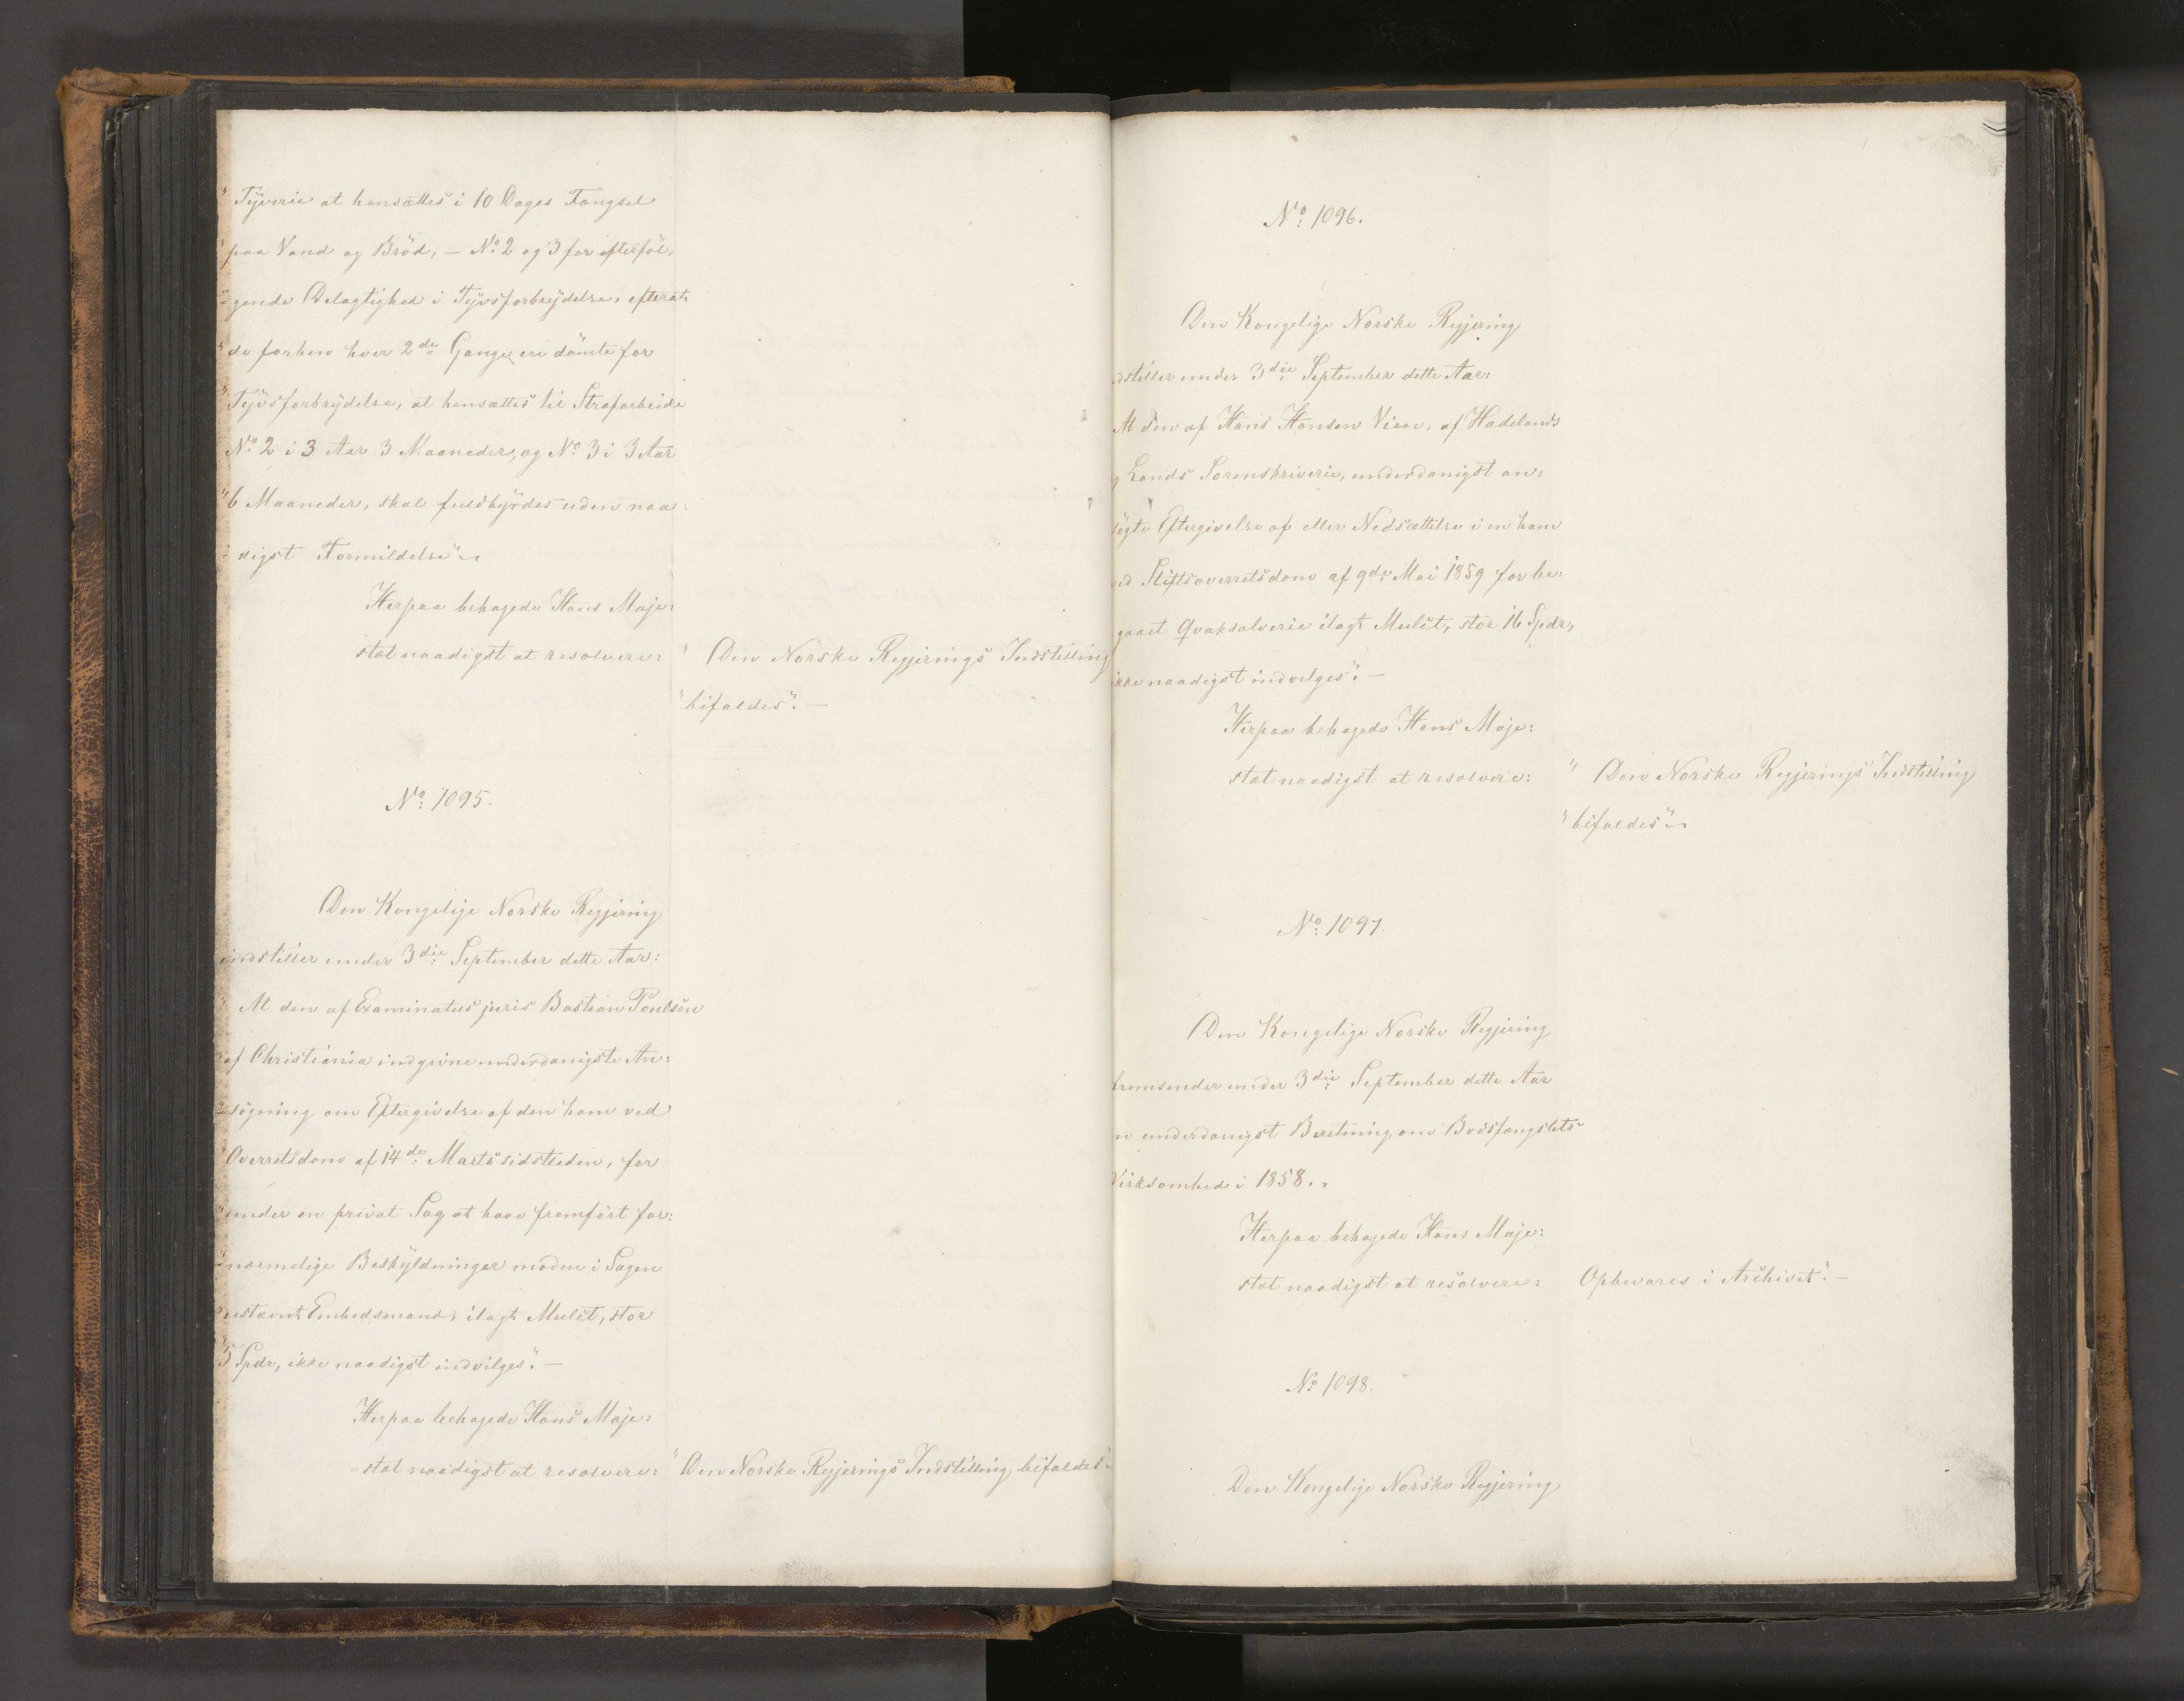 "Tyverie at hensættes i 10 Dages Fængsel
"paa Vand og Bröd, – No: 2 og 3 for efterföl-
"=gende Delagtighed i Tyvsforbrydelse, efterat
"de forhen hver 2de Gange ere dömte for
"Tyvsforbrydelse, at hensættes til Strafarbeide
No: 2 i 3 Aar 3 Maaneder, og No: 3 i 3 Aar
"6 Maaneder, skal fuldbyrdes uden naa:
digst Formildelse".
Herpaa behagede Hans Maje:
stæt naadigst at resolvere: "Den Norske Regjerings Indstilling
"bifaldes". –
No: 1095.
Den Kongelige Norske Regjering
indstiller under 3die September dette Aar:
"At den af Examinatus juris Bastian Poulsen
"af Christiania indgivne underdanigste An:
"=sögning om Eftergivelse af den ham ved
"Overretsdom af 14de Marts sidstleden, for
"under en privat Sag at have fremfört for:
"=nærmelige Beskyldninger mod en i Sagen
"ustævnt Embedsmand, ilagt Mulct, stor
"5 Spdr, ikke naadigst indvilges". –
Herpaa behagede Hans Maje:
=stæt naadigst at resolvere: "Den Norske Regjerings Indstilling bifaldes".
No: 1096.
Den Kongelige Norske Regjering
dstiller under 3die September dette Aar:
At den af Hans Hansen Vien, af Hadelands
g Lands Sorenskriverie, underdanigst an:
sögte Eftergivelse af eller Nedsættelse i en ham
ved Stiftsoverretsdom af 9de Mai 1859 for be:
gaaet Qvaksalverie ilagt Mulct, stor 16 Spdr,
ikke naadigst indvilges". –
Herpaa behagede Hans Maje:
stæt naadigst at resolvere: "Den Norske Regjerings Indstilling
"bifaldes".
No: 1097
Den Kongelige Norske Regjering
fremsender under 3die September dette Aar
n underdanigst Beretning om Bodsfængslets
Virksomhed i 1858.
Herpaa behagede Hans Maje:
stæt naadigst at resolvere: Opbevares i Archivet". –
No: 1098.
Den Kongelige Norske Regjering